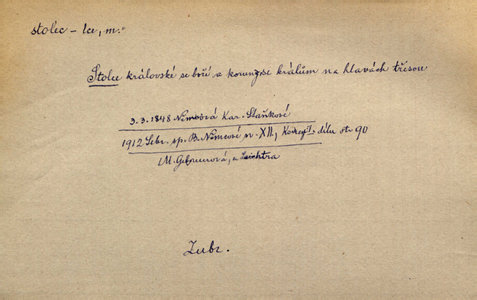 stolec - lce, m.
Stolce královské se boří a koruny se králům na hlavách třesou
3.3.1848 Němcová Kar. Staňkové
1912 Sebr. sp. B. Němcové sv. XII, Koresp. I. dílu str. 90
(M. Gebauerová, a
Zubr.